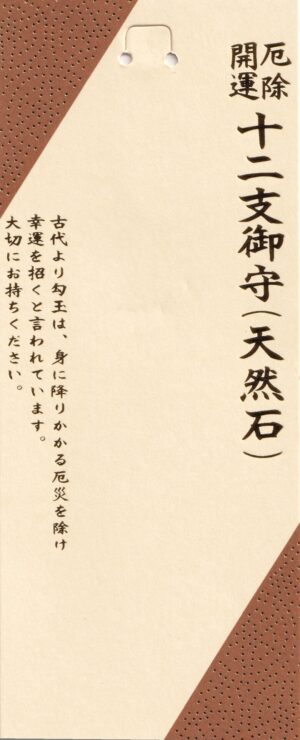 厄除
開運
十二支御守(天然石)
古代より勾玉は、身に降りかかる厄災を除け
幸運を招くと言われています。
大切にお持ちください。